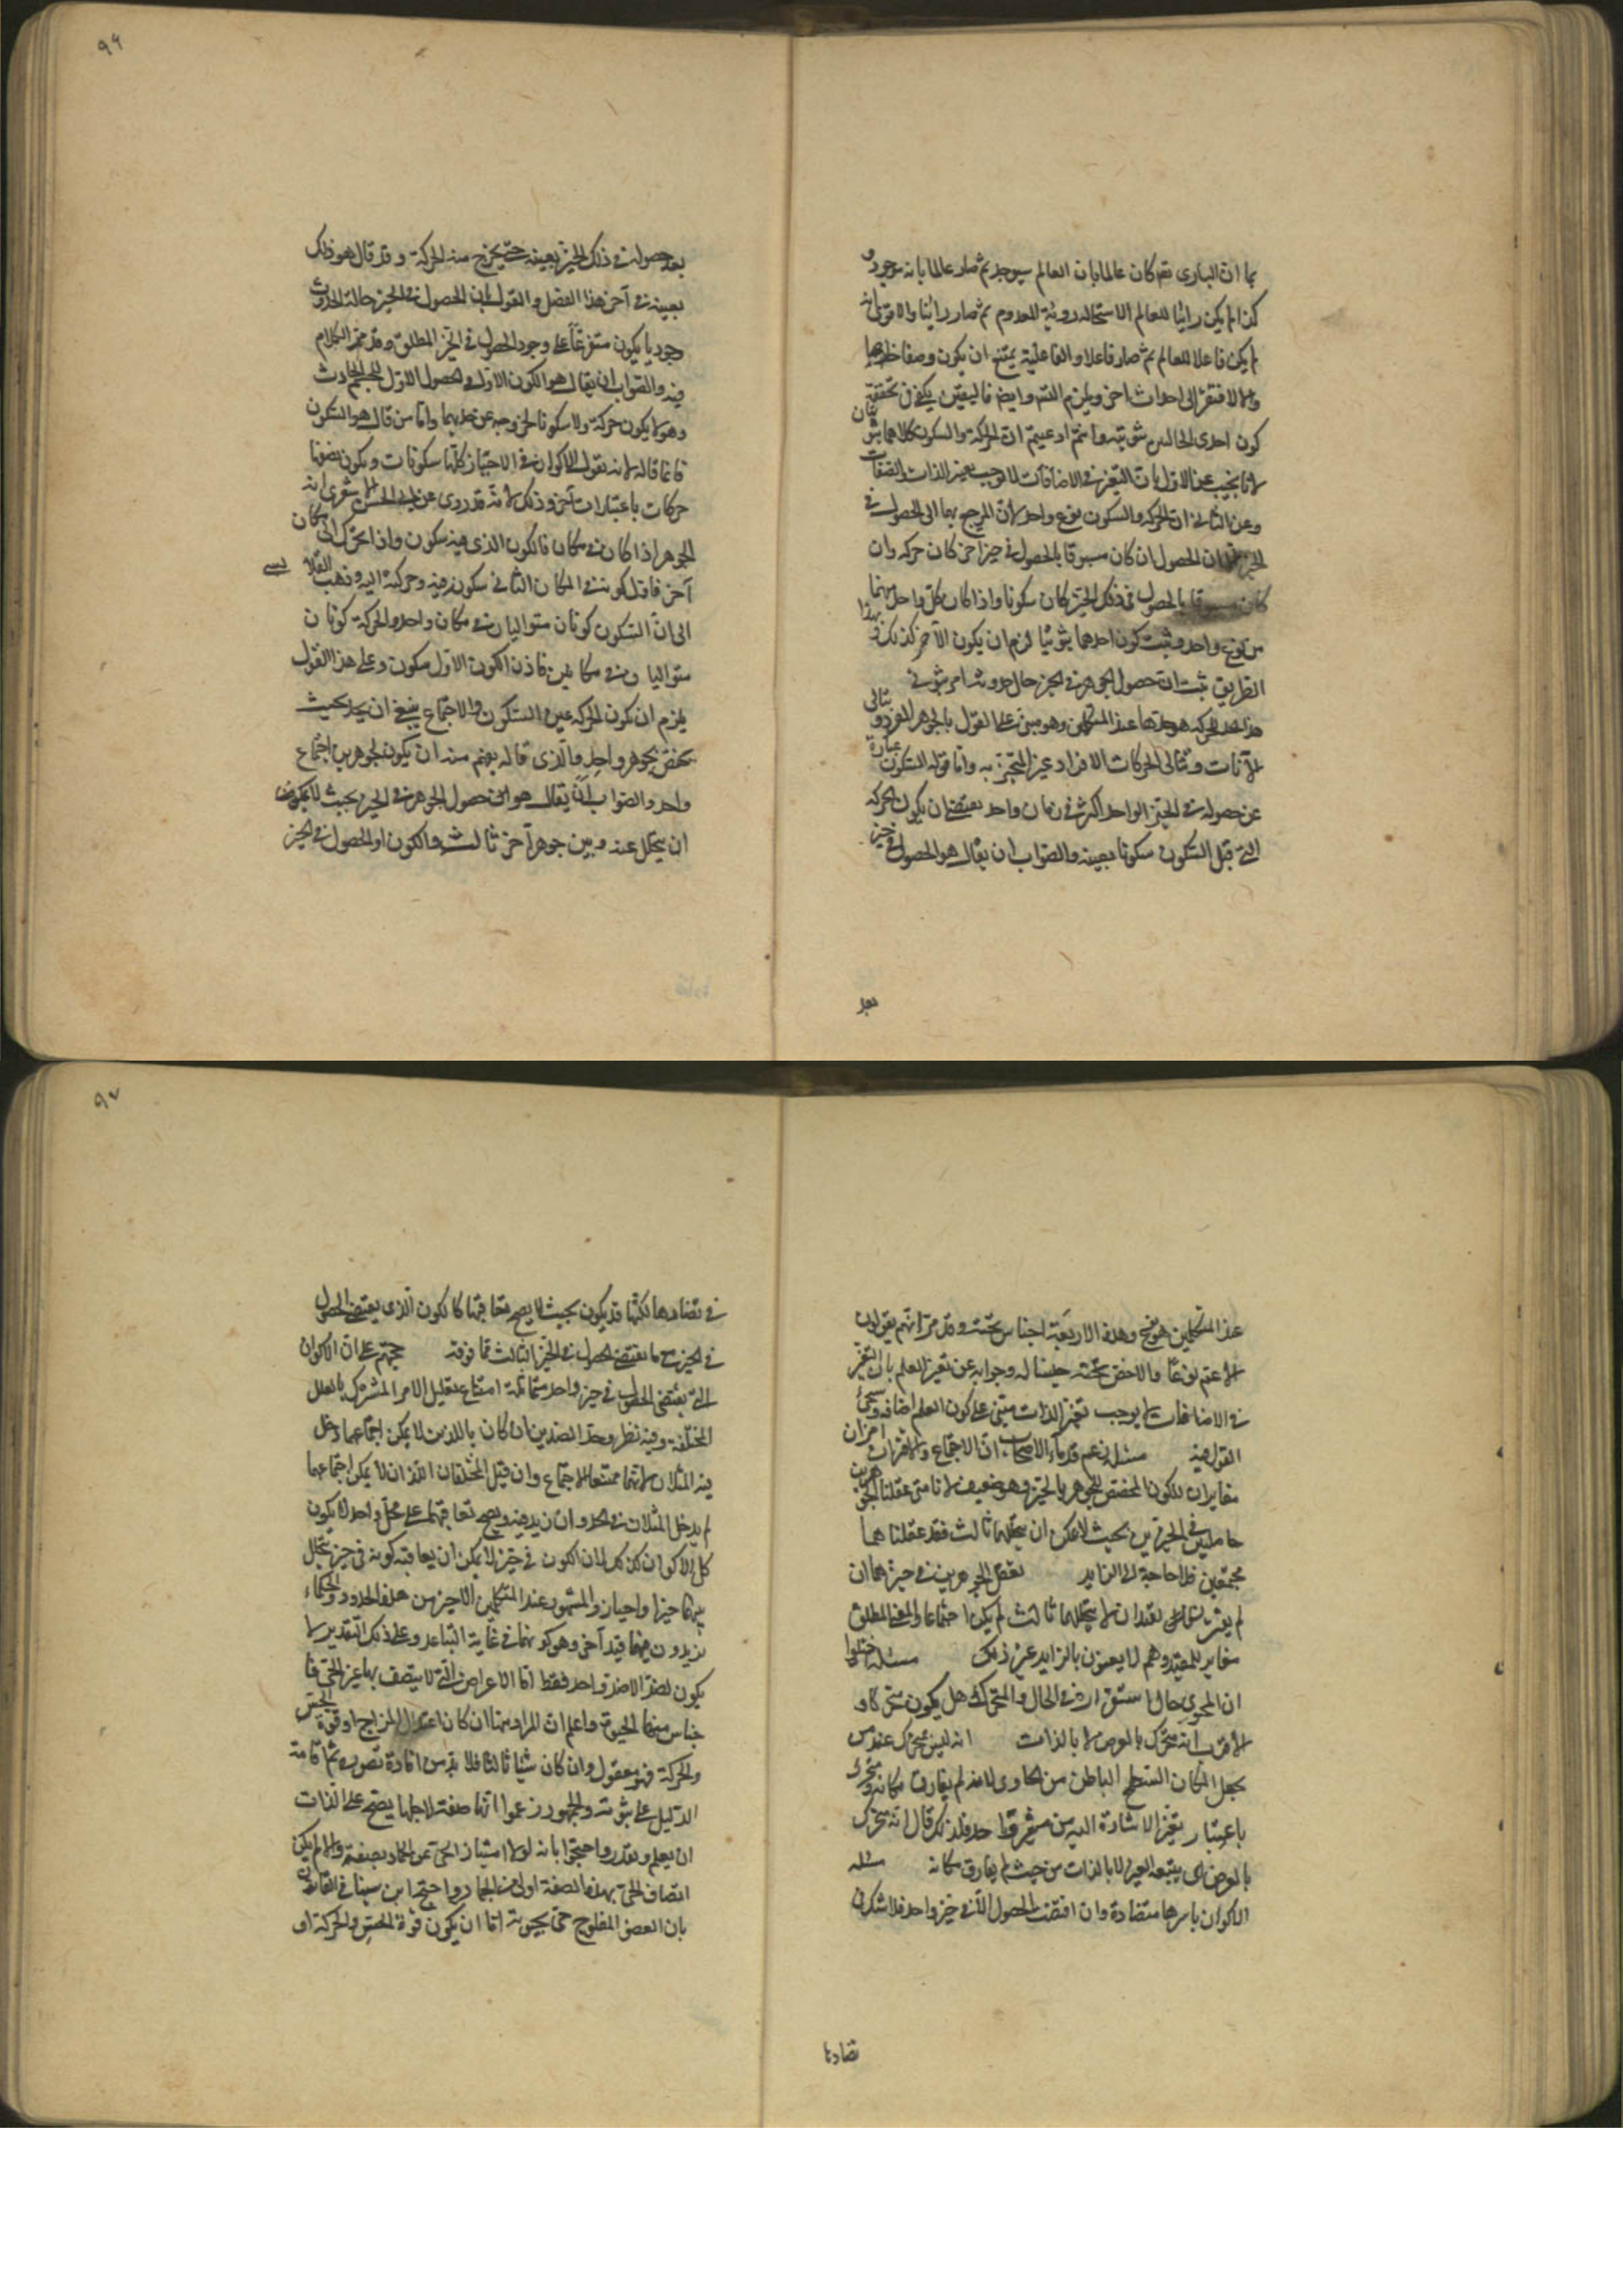 بما ان البارى تعه كان عالما بان العالم سيوجد ثم صار عالما بانه موجود و
كذا لم يكن رائيا للعالم لاستحاله روية المعدوم ثم صار رائيا والاقوى انه
لم يكن فاعلا للعالم ثم صار فاعلا والفاعلية يمتنع ان يكون وصفا حادثا
والا لافتقر الى احداث اخر ويلزم التسه وايضا فاليقين يكفى فى تحققه
كون احدى الحالتين ثبوتيه وانتم ادعيتم ان الحركة والسكون كلاهما ثبوتيان
لانا نجيب عن الاول بان التغير فى الاضافات لا يوجب تغير الذات والصفات
وعن الثانى ان الحركه والسكون نوع واحد لان المرجع بهما الى الحصول فى
الحيز فان الحصول ان كان مسبوقا بالحصول فى حيز اخر كان حركه وان
كان مسبوقا بالحصول فى ذلك الحيز كان سكونا واذا كان كل واحد منهما
من نوع واحد وثبت كون احدهما ثبوتيا لزم ان يكون الآخر كذلك وبهذا
الطريق ثبت ان حصول الجوهر فى الحيز حال حدوثه امر ثبوتى
هذا الحد للحركه هو حدها عند المتكلمين وهو مبنى على القول بالجوهر الفرد و تتالى
الآنات وتتالى الحركات الافراد غير المتجزيه واما قوله السكون عبارة
عن حصوله فى الحيز الواحد اكثر من زمان واحد يقتضى ان يكون الحركه
التى قبل السكون سكونا بعينه والصواب ان يقال هو الحصول فى حيز
بعد
٩٦
بعد حصوله فى ذلك الحيز بعينه حتى يخرج منه الحركة وقد قال هو ذلك
بعينه فى آخر هذا الفصل والقول بان الحصول فى الحيز حالة الحدوث
وجوديا يكون متفرعا على وجود الحصول فى الحيز المطلق وقد مر الكلام
فيه والصواب ان يقال هو الكون الاول والحصول الاول للجسم الحادث
وهو لا يكون حركة ولا سكونا لخروجه عن حديهما واما من قال هو السكون
فانما قاله لانه يقول الاكوان فى الاحياز كلها سكونات ويكون بعضها
حركات باعتبارات آخر وذلك لانه قد روى عن ابى الحسن الاشعرى انه
الجوهر اذا كان فى مكان فالكون الذى فيه سكون واذا تحرك الى مكان
آخر فاول كونه فى المكان الثانى سكون فيه وحركة اليه وذهب القلانسى
الى ان السكون كونان متواليان فى مكان واحد والحركة كونان
متواليان فى مكانين فاذن الكون الاول سكون وعلى هذا القول
يلزم ان يكون الحركه عين السكون والاجتماع ينبغى ان يحد بحيث
يختص بجوهر واحد والذى قاله يفهم منه ان يكون لجوهرين اجتماع
واحد والصواب ان يقال هو حصول الجوهر فى الحيز بحيث لا يمكن
ان يتخلل عنه وبين جوهر آخر ثالث والكون او الحصول فى الحيز
عند المتكلمين هو نوع وهذه الاربعة اجناس تحته وقد مر انهم يقولون
للاعم نوعا والاخص تحته جنسا له وجوابه عن تغير العلم بان التغير
فى الاضافات لا يوجب تغير الذات مبنى على كون العلم اضافه وسيجئ
القول فيه مسئله زعم قدماء الاصحاب ان الاجتماع والافتراق امران
مغايران للكون المخصص للجوهر بالحيز وهو ضعيف لانا متى عقلنا الجوهرين
حاصلين فى الحيزين بحيث لا يمكن ان يتخللهما ثالث فقد عقلناهما
مجتمعين فلا حاجة الى الزايد تعقل الجوهرين فى حيزهما ان
لم يعتبر لهما قيد ان لا يتخللهما ثالث لم يكن اجتماعا والمعنى المطلق
مغاير للمقيد وهم لا يعنون بالزايد غير ذلك مسئله اختلفوا
ان المحوى حال استقراره فى الحال والمتحرك هل يكون متحركا و
الاقرب انه متحرك بالعرض لا بالذات انه ليس متحرك عند من
يجعل المكان السطح الباطن من الحاوى لانه لم يفارق مكانه ومتحرك
باعتبار تغير الاشارة اليه من مشير قط حد فلذلك قال انه متحرك
بالعرض اى بتبعه الغير لا بالذات من حيث لم يفارق مكانه مسئله
الاكوان باسرها متضادة وان اقتضت الحصول لان فى حيز واحد فلا شك فى
تضادها
٩٧
فى تضادها لكنها قد يكون بحيث لا يصح تعاقبها كالكون الذى يقتضى الحصول
فى الحيز مع ما يقتضى الحصول فى الحيز الثالث مما فوقه حجتهم على ان الاكوان
التى تقتضى الحصول فى حيز واحد متماثلة امتناع تعليل الامر المشترك بالعلل
المختلفة وفيه نظر وحد الضدين ان كان باللذين لا يمكن اجتماعهما دخل
فيه المثلان لانهما ممتنعا الاجتماع وان قيل المختلفان اللذان لا يمكن اجتماعهما
لم يدخل المثلان فى الحد وان زيد فيه ويصح تعاقبهما على محل واحد لا يكون
كل الاكوان كذلك لان الكون فى حيز لا يمكن ان يعاقبه كونه فى حيز يتخلل
بينهما حيز او احياز والمشهور عند المتكلمين الاخير من هذه الحدود والحكماء
يزيدون فيها قيدا آخر وهو كونهما فى غاية التباعد وعلى ذلك التقدير لا
يكون لضد الا ضد واحد فقط اما الاعراض التى لا يتصف بها غير الحى فا
جناس منها الحيوة واعلم ان المراد بهنا ان كان اعتدال المزاج او قوة الحس
والحركة فهو معقول وان كان شيئا ثالثا فلا بد من افادة تصوره ثم اقامة
الدليل على ثبوته والجمهور زعموا انها صفة لاجلها يصح على الذات
ان يعلم ويقدر واحتجوا بانه لولا امتياز الحى عن الجماد بصفة والا لم يكن
اتصاف الحى بهذه الصفة اولى من الجماد واحتج ابن سينا فى القانون
بان العضو المفلوج حى بحيوته اما ان يكون قوة الحس والحركة او